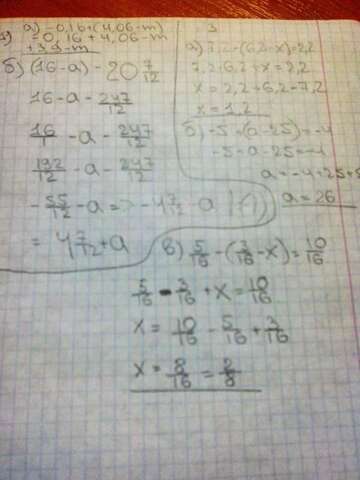 1) а) -0,16+(4,06-m)
= 0,16 + 4,06 - m
б) (16-a) - 20 7/12
16-a - 247/12
16/1 - a - 247/12
192/12 - a - 247/12
- 55/12 - a => -4 7/12 - a | (-1)
= 4 7/12 + a
3
а) 7,2-(6,2-x)=2,2
7,2-6,2+x=2,2
x = 2,2+6,2-7,2
x = 1,2
б) -5+(a-25)=-4
-5+a-25=-4
a=-4+25+5
a = 26
в) 5/16 - (3/16 - x) = 10/16
5/16 - 3/16 + x = 10/16
x = 10/16 - 5/16 + 3/16
x = 8/16 = 2/8